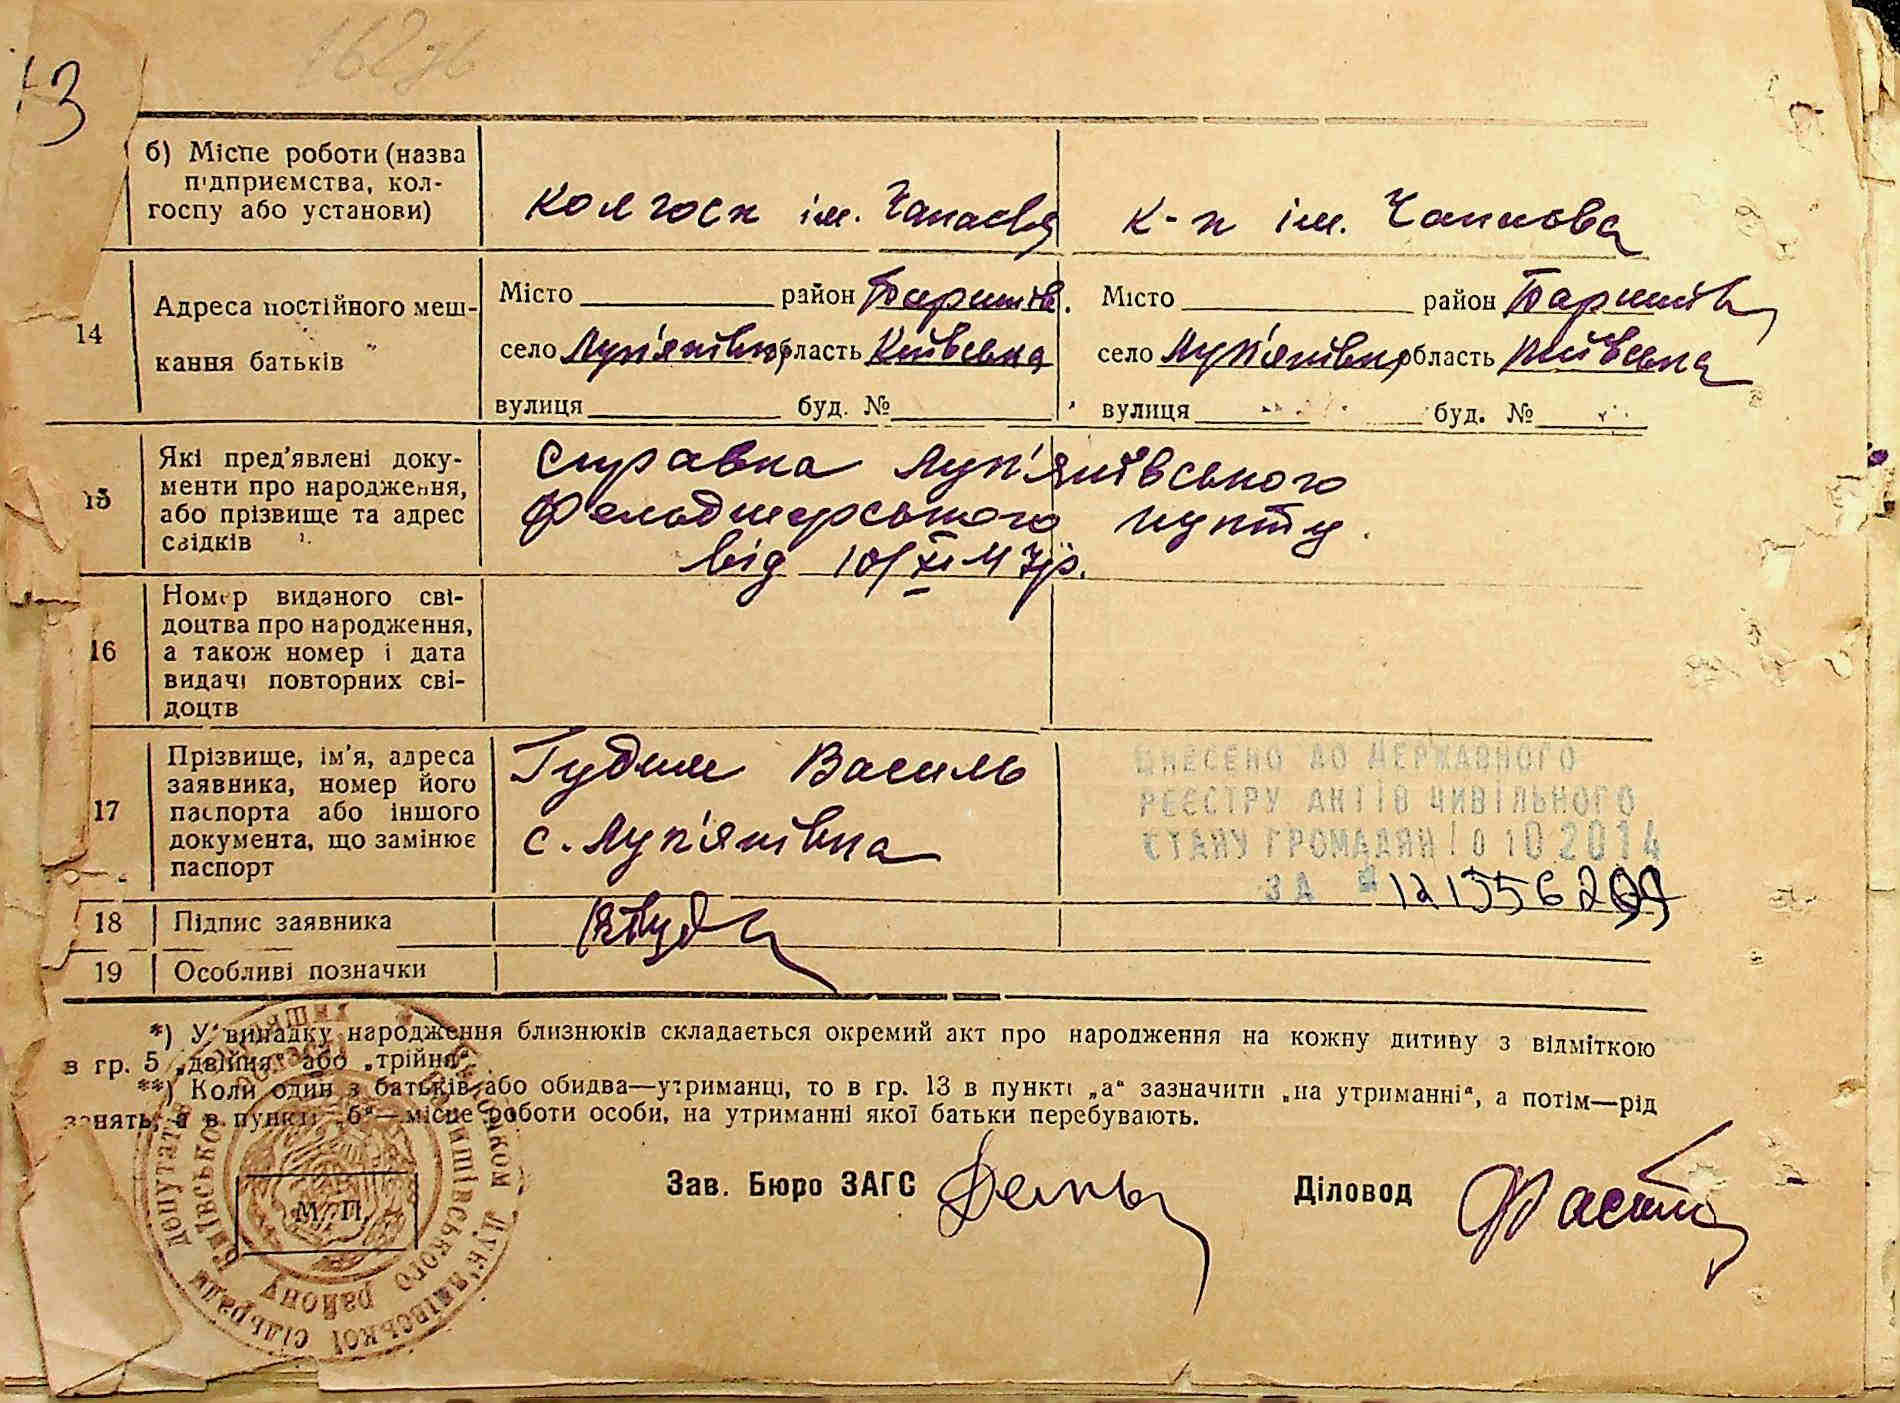 13
162зв
б) Місце роботи (назва
підприємства, кол-
госпу або установи)
колгосп ім. Чапаєва
к-п ім. Чапаєва
14
Адреса постійного меш-
кання батьків
Місто район Баришів.
село Лук'янівка область Київська
вулиця буд. №
Місто район Баришів
село Лук'янівка область Київська
вулиця буд. №
15
Які пред'явлені доку-
менти про народження,
або прізвище та адрес
свідків
Справка Лук'янівського
Фельдшерського пункту
від 10/XI
16
Номер виданого сві-
доцтва про народження,
а також номер і дата
видачі повторних сві-
доцтв
17
Прізвище, ім'я, адреса
заявника, номер його
паспорта або іншого
документа, що замінює
паспорт
Гудим Василь
с. Лук'янівка
ВНЕСЕНО ДО ДЕРЖАВНОГО
РЕЄСТРУ АКТІВ ЦИВІЛЬНОГО
СТАНУ ГРОМАДЯН 10 10 2014
ЗА №
18
Підпис заявника
19
Особливі позначки
*) У випадку народження близнюків складається окремий акт про народження на кожну дитину з відміткою
в гр. 5 „двійня" або „трійня".
**) Коли один з батьків або обидва—утриманці, то в гр. 13 в пункті „а" зазначити „на утриманні", а потім—рід
занять, а в пункті „б"—місце роботи особи, на утриманні якої батьки перебувають.
Зав. Бюро ЗАГС
Діловод
М. П.
Виконком Лук'янівської сільради депутатів
Баришівського району Київської